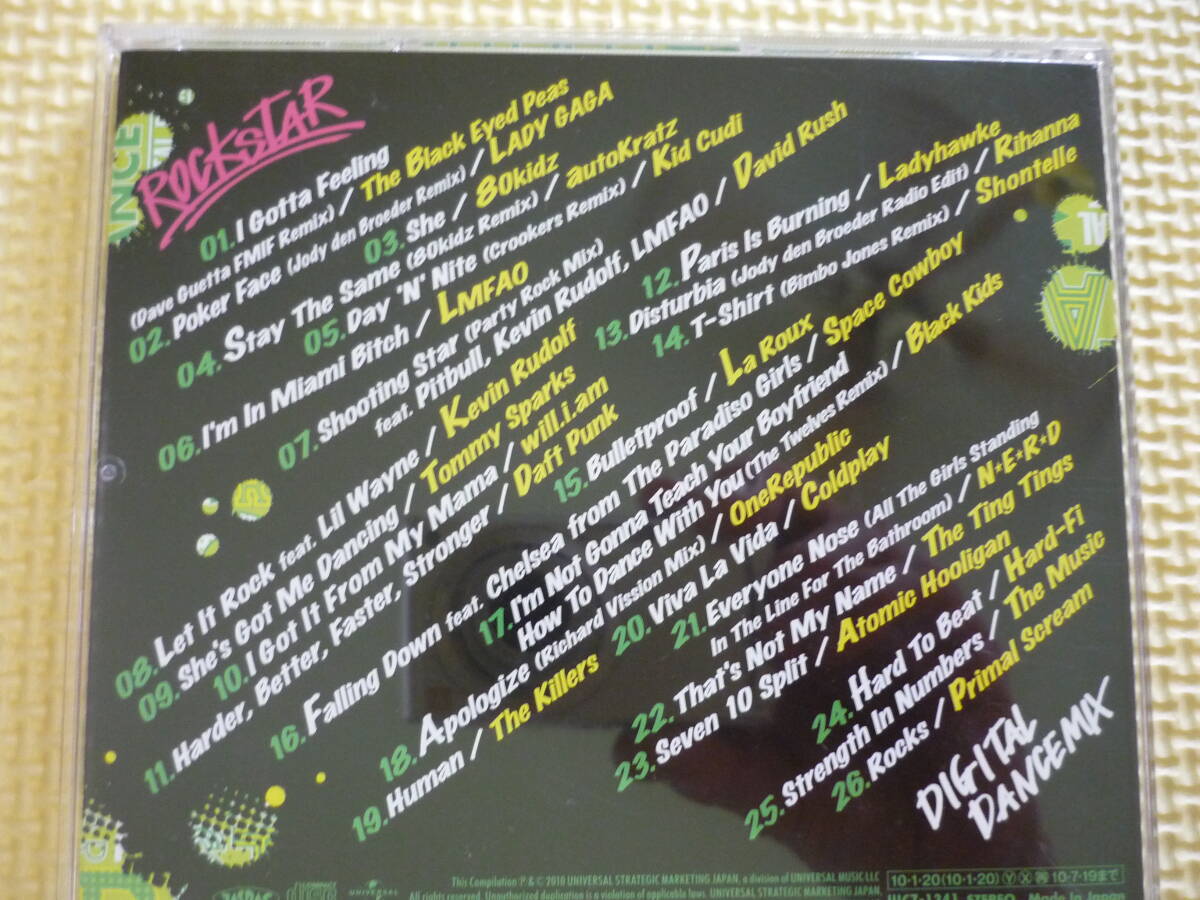 ROCKSTAR
01. I Gotta Feeling
(Dave Guetta FMIF Remix) / The Black Eyed Peas
02. Poker Face (Jody den Broeder Remix) / LADY GAGA
03. She / 80kidz
04. Stay The Same (80kidz Remix) / autoKratz
05. Day 'N' Nite (Crookers Remix) / Kid Cudi
06. I'm In Miami Bitch / LMFAO
07. Shooting Star (Party Rock Mix)
feat. Pitbull, Kevin Rudolf, LMFAO / David Rush
08. Let It Rock feat. Lil Wayne / Kevin Rudolf
09. She's Got Me Dancing / Tommy Sparks
10. I Got It From My Mama / will.i.am
11. Harder, Better, Faster, Stronger / Daft Punk
12. Paris Is Burning / Ladyhawke
13. Disturbia (Jody den Broeder Radio Edit) / Rihanna
14. T-Shirt (Bimbo Jones Remix) / Shontelle
15. Bulletproof / La Roux
16. Falling Down feat. Chelsea from The Paradiso Girls / Space Cowboy
17. I'm Not Gonna Teach Your Boyfriend
How To Dance With You (The Twelves Remix) / Black Kids
18. Apologize (Richard Vission Mix) / OneRepublic
19. Human / The Killers
20. Viva La Vida / Coldplay
21. Everyone Nose (All The Girls Standing
In The Line For The Bathroom) / N★E★R★D
22. That's Not My Name / The Ting Tings
23. Seven 10 Split / Atomic Hooligan
24. Hard To Beat / Hard-Fi
25. Strength In Numbers / The Music
26. Rocks / Primal Scream
DIGITAL
DANCEMIX
This Compilation ℗ & © 2010 UNIVERSAL STRATEGIC MARKETING JAPAN, a division of UNIVERSAL MUSIC LLC
All rights reserved. Unauthorized duplication is a violation of applicable laws. UNIVERSAL STRATEGIC MARKETING JAPAN.
UNIVERSAL
10・1・20(10・1・20) Ⓨ Ⓧ 10・7・19まで
STEREO Made in Japan